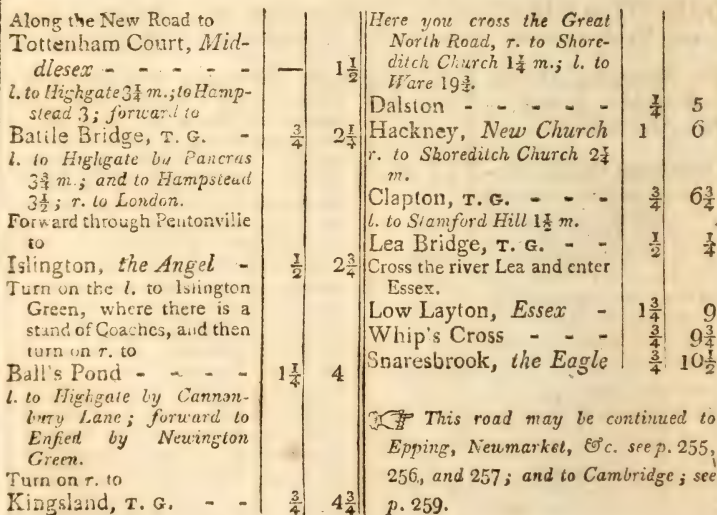 Along the New Road to
Tottenham Court, Mid-
dlesex - - - - - — 1½
l. to Highgate 3¼ m.; to Hamp-
stead 3; forward to
Batile Bridge, T. G. - ¾ 2¼
l. to Highgate by Pancras
3¾ m.; and to Hampstead
3½; r. to London.
Forward through Pentonville
to
Islington, the Angel - ½ 2¾
Turn on the l. to Islington
Green, where there is a
stand of Coaches, and then
turn on r. to
Ball's Pond - - - - 1¼ 4
l. to Highgate by Cannon-
bury Lane; forward to
Enfied by Newington
Green.
Turn on r. to
Kingsland, T. G. - - ¾ 4¾
Here you cross the Great
North Road, r. to Shore-
ditch Church 1¼ m.; l. to
Ware 19¾.
Dalston - - - - - ¼ 5
Hackney, New Church 1 6
r. to Shoreditch Church 2¼
m.
Clapton, T. G. - - - ¾ 6¾
l. to Stamford Hill 1½ m.
Lea Bridge, T. G. - - ½ ¼
Cross the river Lea and enter
Essex.
Low Layton, Essex - 1¾ 9
Whip's Cross - - - ¾ 9¾
Snaresbrook, the Eagle ¾ 10½
☞ This road may be continued to
Epping, Newmarket, &c. see p. 255,
256, and 257; and to Cambridge; see
p. 259.